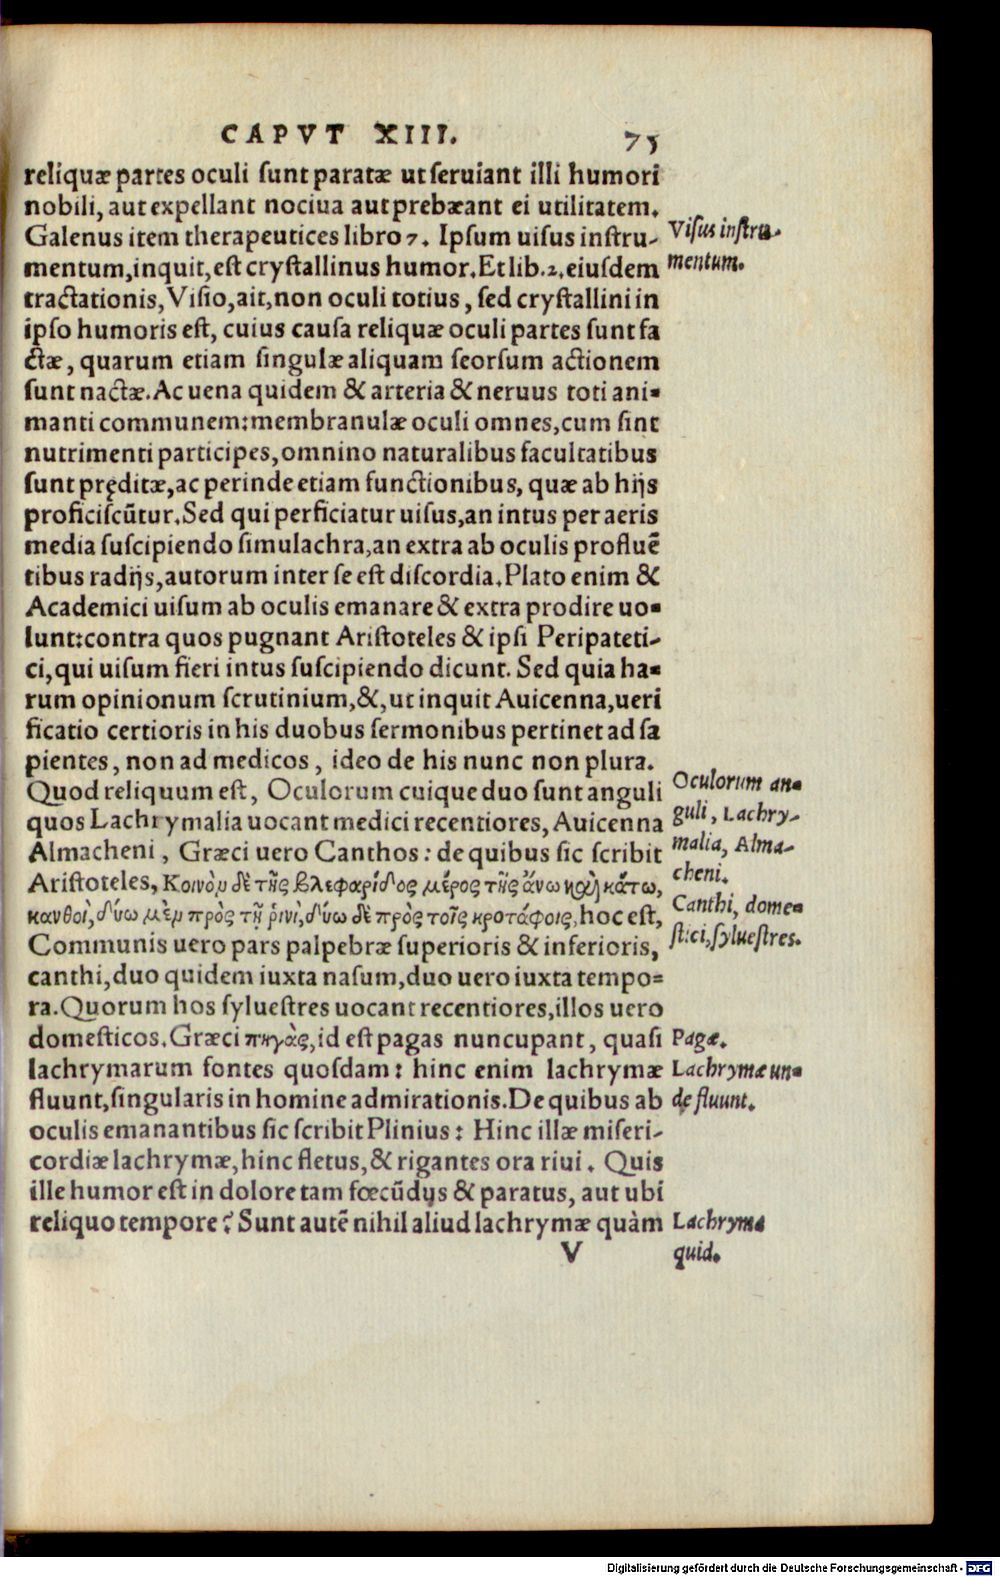 CAPVT XIII. 75
reliquæ partes oculi sunt paratæ ut seruiant illi humori
nobili, aut expellant nociua aut prebæant ei utilitatem.
Galenus item therapeutices libro 7. Ipsum uisus instru-
Visus instru-
mentum, inquit, est crystallinus humor. Et lib. 2. eiusdem
mentum.
tractationis, Visio, ait, non oculi totius, sed crystallini in
ipso humoris est, cuius causa reliquæ oculi partes sunt fa
ctæ, quarum etiam singulæ aliquam seorsum actionem
sunt nactæ. Ac uena quidem & arteria & neruus toti ani-
manti communem: membranulæ oculi omnes, cum sint
nutrimenti participes, omnino naturalibus facultatibus
sunt pręditæ, ac perinde etiam functionibus, quæ ab hijs
proficiscūtur. Sed qui perficiatur uisus, an intus per aeris
media suscipiendo simulachra, an extra ab oculis profluē
tibus radijs, autorum inter se est discordia. Plato enim &
Academici uisum ab oculis emanare & extra prodire uo-
lunt: contra quos pugnant Aristoteles & ipsi Peripateti-
ci, qui uisum fieri intus suscipiendo dicunt. Sed quia ha-
rum opinionum scrutinium, &, ut inquit Auicenna, ueri
ficatio certioris in his duobus sermonibus pertinet ad sa
pientes, non ad medicos, ideo de his nunc non plura.
Quod reliquum est, Oculorum cuique duo sunt anguli
Oculorum an-
quos Lachrymalia uocant medici recentiores, Auicenna
guli, Lachry-
Almacheni, Græci uero Canthos: de quibus sic scribit
malia, Alma-
Aristoteles, Κοινὸν δὲ τῆς βλεφαρίδος μέρος τῆς ἄνω καὶ κάτω,
cheni.
κανθοὶ, δύω μὲν πρὸς τῇ ῥινὶ, δύω δὲ πρὸς τοῖς κροτάφοις, hoc est,
Canthi, dome-
Communis uero pars palpebræ superioris & inferioris,
stici, syluestres.
canthi, duo quidem iuxta nasum, duo uero iuxta tempo-
ra. Quorum hos syluestres uocant recentiores, illos uero
domesticos. Græci πηγὰς, id est pagas nuncupant, quasi
Pagæ.
lachrymarum fontes quosdam: hinc enim lachrymæ
Lachrymæ un-
fluunt, singularis in homine admirationis. De quibus ab
de fluunt.
oculis emanantibus sic scribit Plinius: Hinc illæ miseri-
cordiæ lachrymæ, hinc fletus, & rigantes ora riui. Quis
ille humor est in dolore tam fœcūdus & paratus, aut ubi
reliquo tempore? Sunt autē nihil aliud lachrymæ quàm
Lachryma
V
quid.
Digitalisierung gefördert durch die Deutsche Forschungsgemeinschaft - DFG